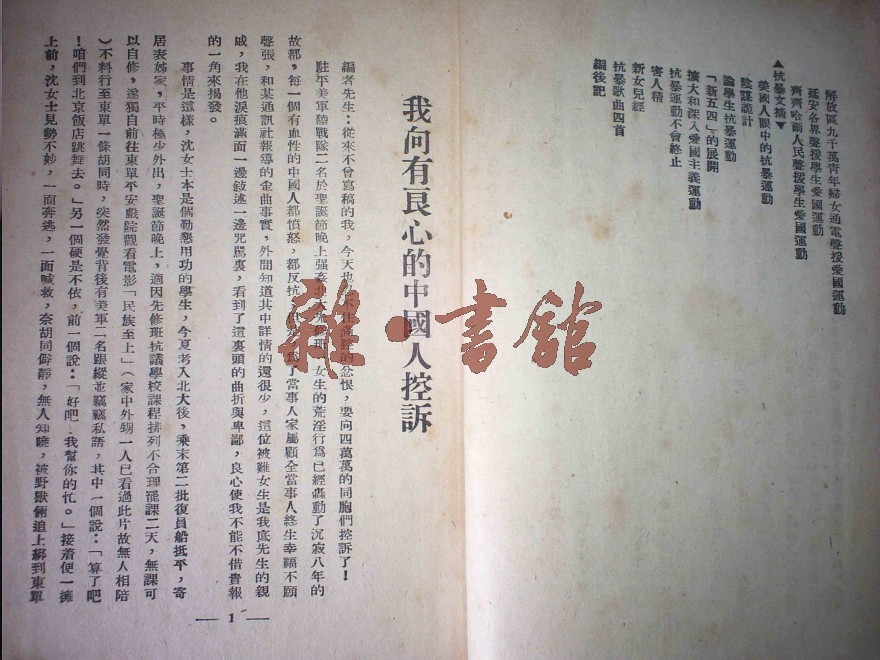 解放區九千萬靑年婦女通電聲援愛國運動
延安各界聲援學生愛國運動
齊齊哈爾人民聲援學生愛國運動
▲抗暴文摘▼
美國人眼中的抗暴運動
陰謀詭計
論學生抗暴運動
「新五四」的展開
擴大和深入愛國主義運動
抗暴運動不會終止
害人精
新女兒經
抗暴歌曲四首
編後記
我向有良心的中國人控訴
編者先生：從來不曾寫稿的我，今天也 的忿恨，要向四萬萬的同胞們控訴了！
駐平美軍陸戰隊二名於聖誕節晚上强姦北 女生的荒淫行爲已經轟動了沉寂八年的
故都，每一個有血性的中國人都憤怒，都反抗， 爲了當事人家屬顧全當事人終生幸福不願
聲張，和某通訊社報導的歪曲事實，外間知道其中詳情的還很少，這位被難女生是我底先生的親
戚，我在他淚痕滿面一邊敍述一邊咒罵裏，看到了這裏頭的曲折與卑鄙，良心使我不能不借貴報
的一角來揭發。
事情是這樣，沈女士本是個勤懇用功的學生，今夏考入北大後，乘末第二批復員船抵平，寄
居表姊家，平時極少外出，聖誕節晚上，適因先修班抗議學校課程排列不合理罷課二天，無課可
以自修，遂獨自前往東單平安戲院觀看電影「民族至上」（家中外甥一人已看過此片故無人相陪
）不料行至東單一條胡同時，突然發覺背後有美軍二名跟縱並竊竊私語，其中一個說：「算了吧
！咱們到北京飯店跳舞去。」另一個硬是不依，前一個說：「好吧，我幫你的忙。」接着便一擁
上前，沈女士見勢不妙，一面奔逃，一面喊救，奈胡同僻靜，無人知曉，被野獸倆追上綁到東單
— 1 —
雜·書館